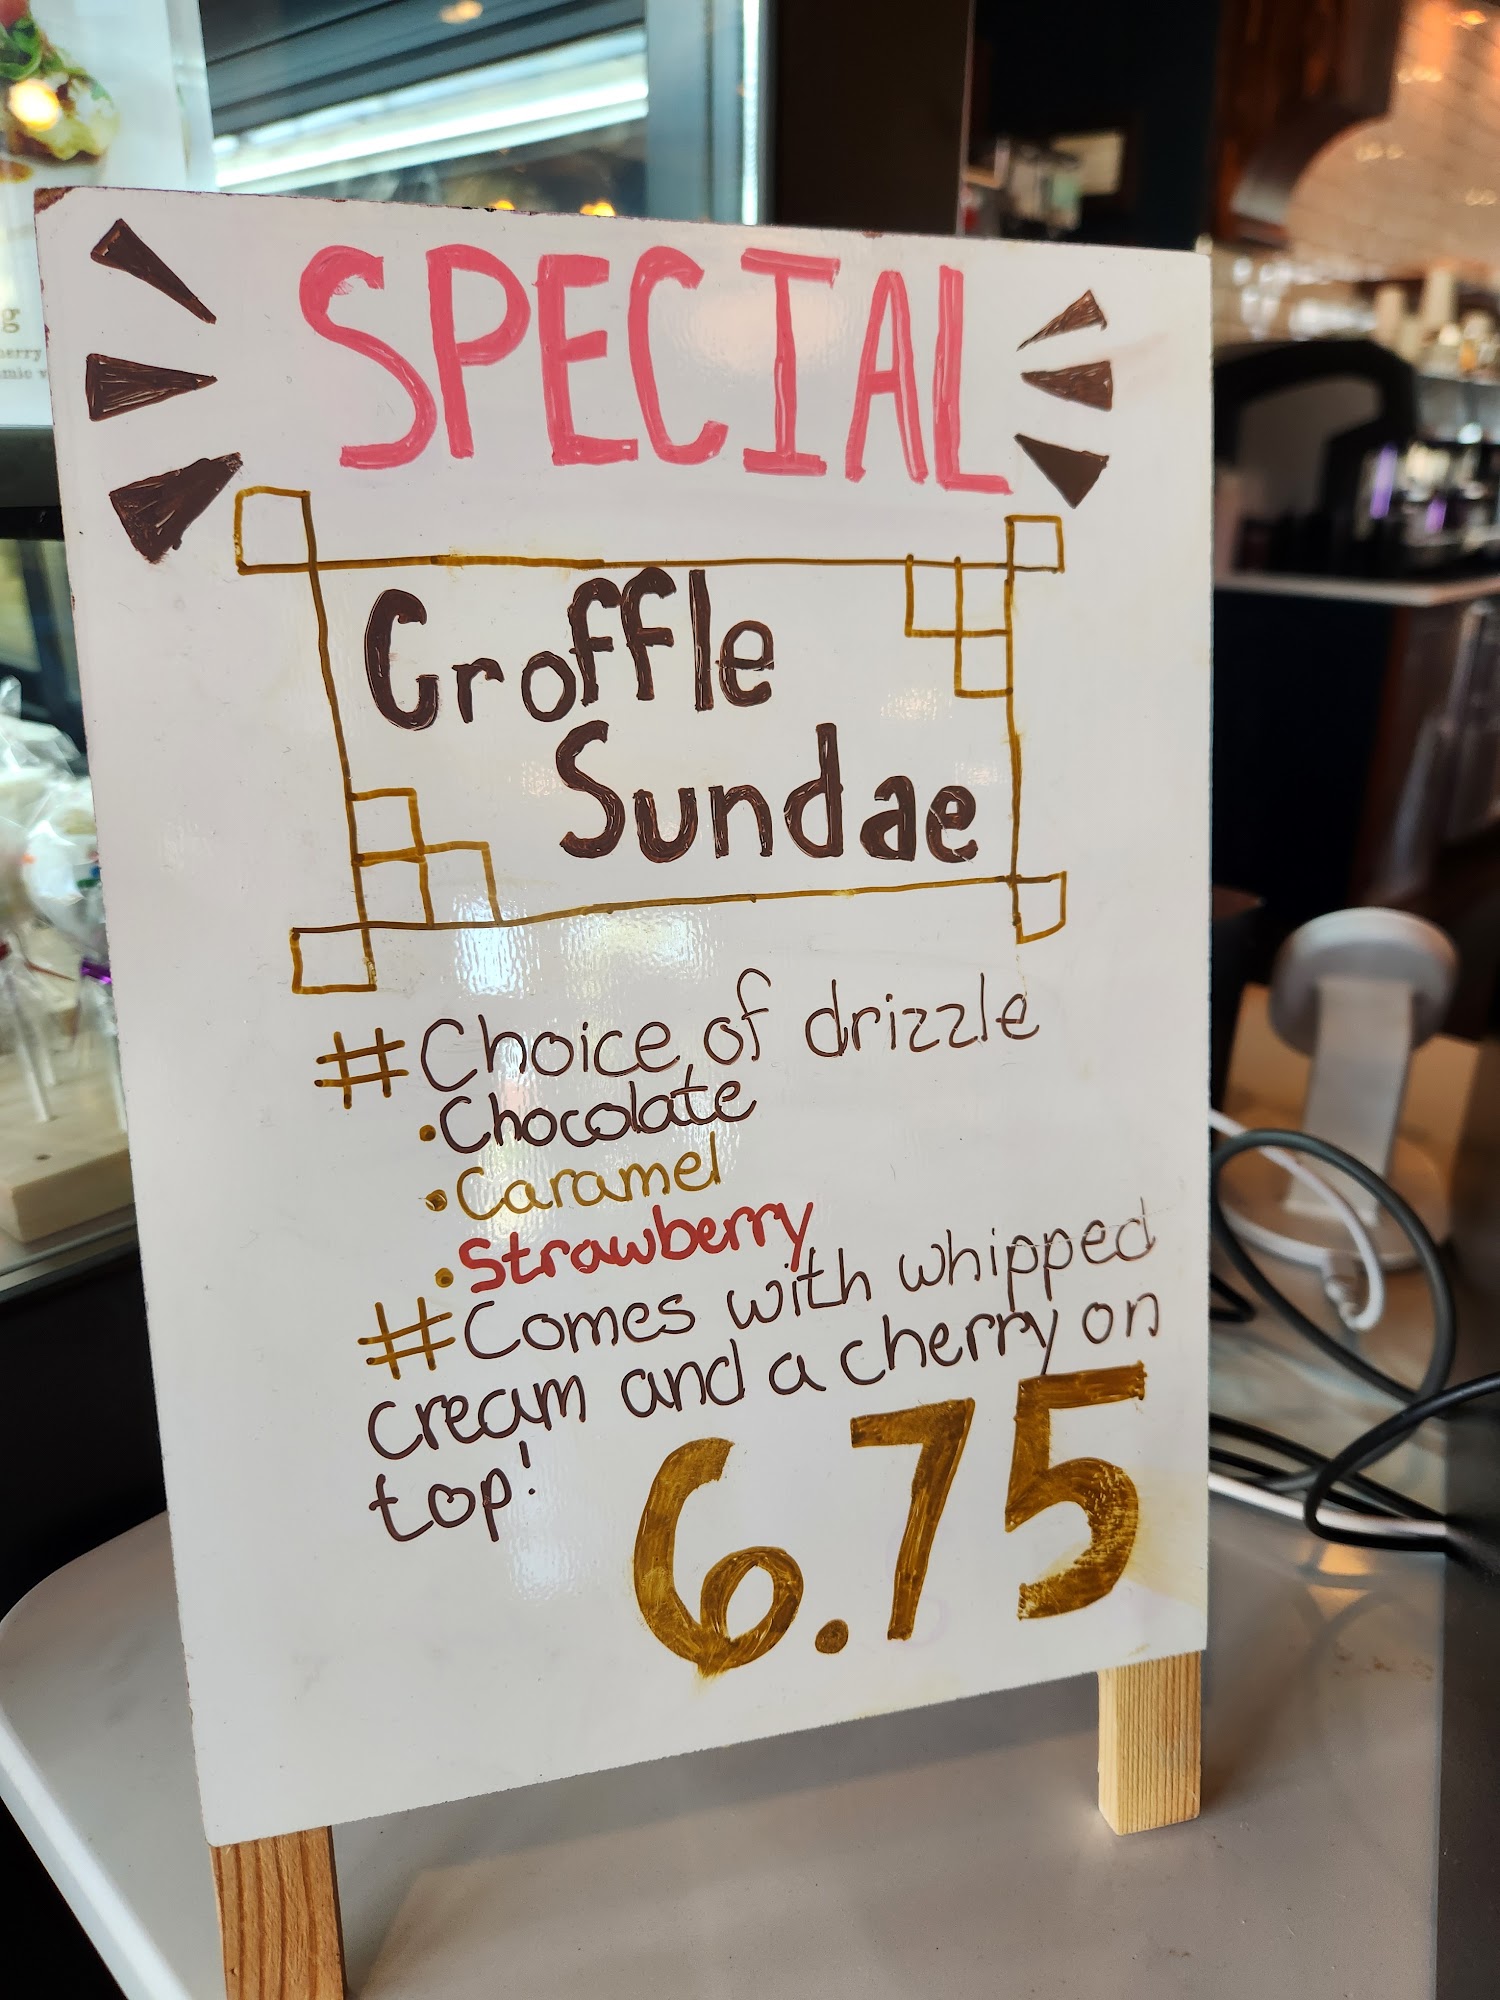 SPECIAL
Croffle
Sundae
# Choice of drizzle
• Chocolate
• Caramel
• Strawberry
# Comes with whipped
cream and a cherry on
top!
6.75